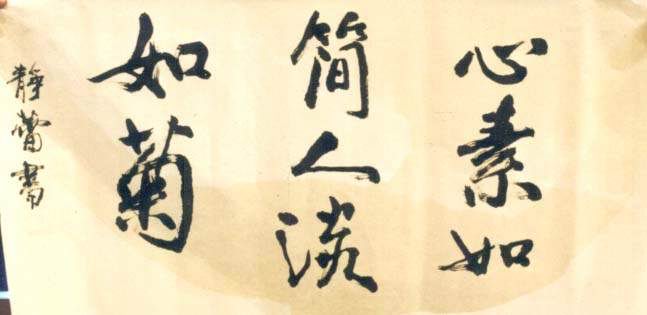 心素如
简人淡
如菊
静蕾书